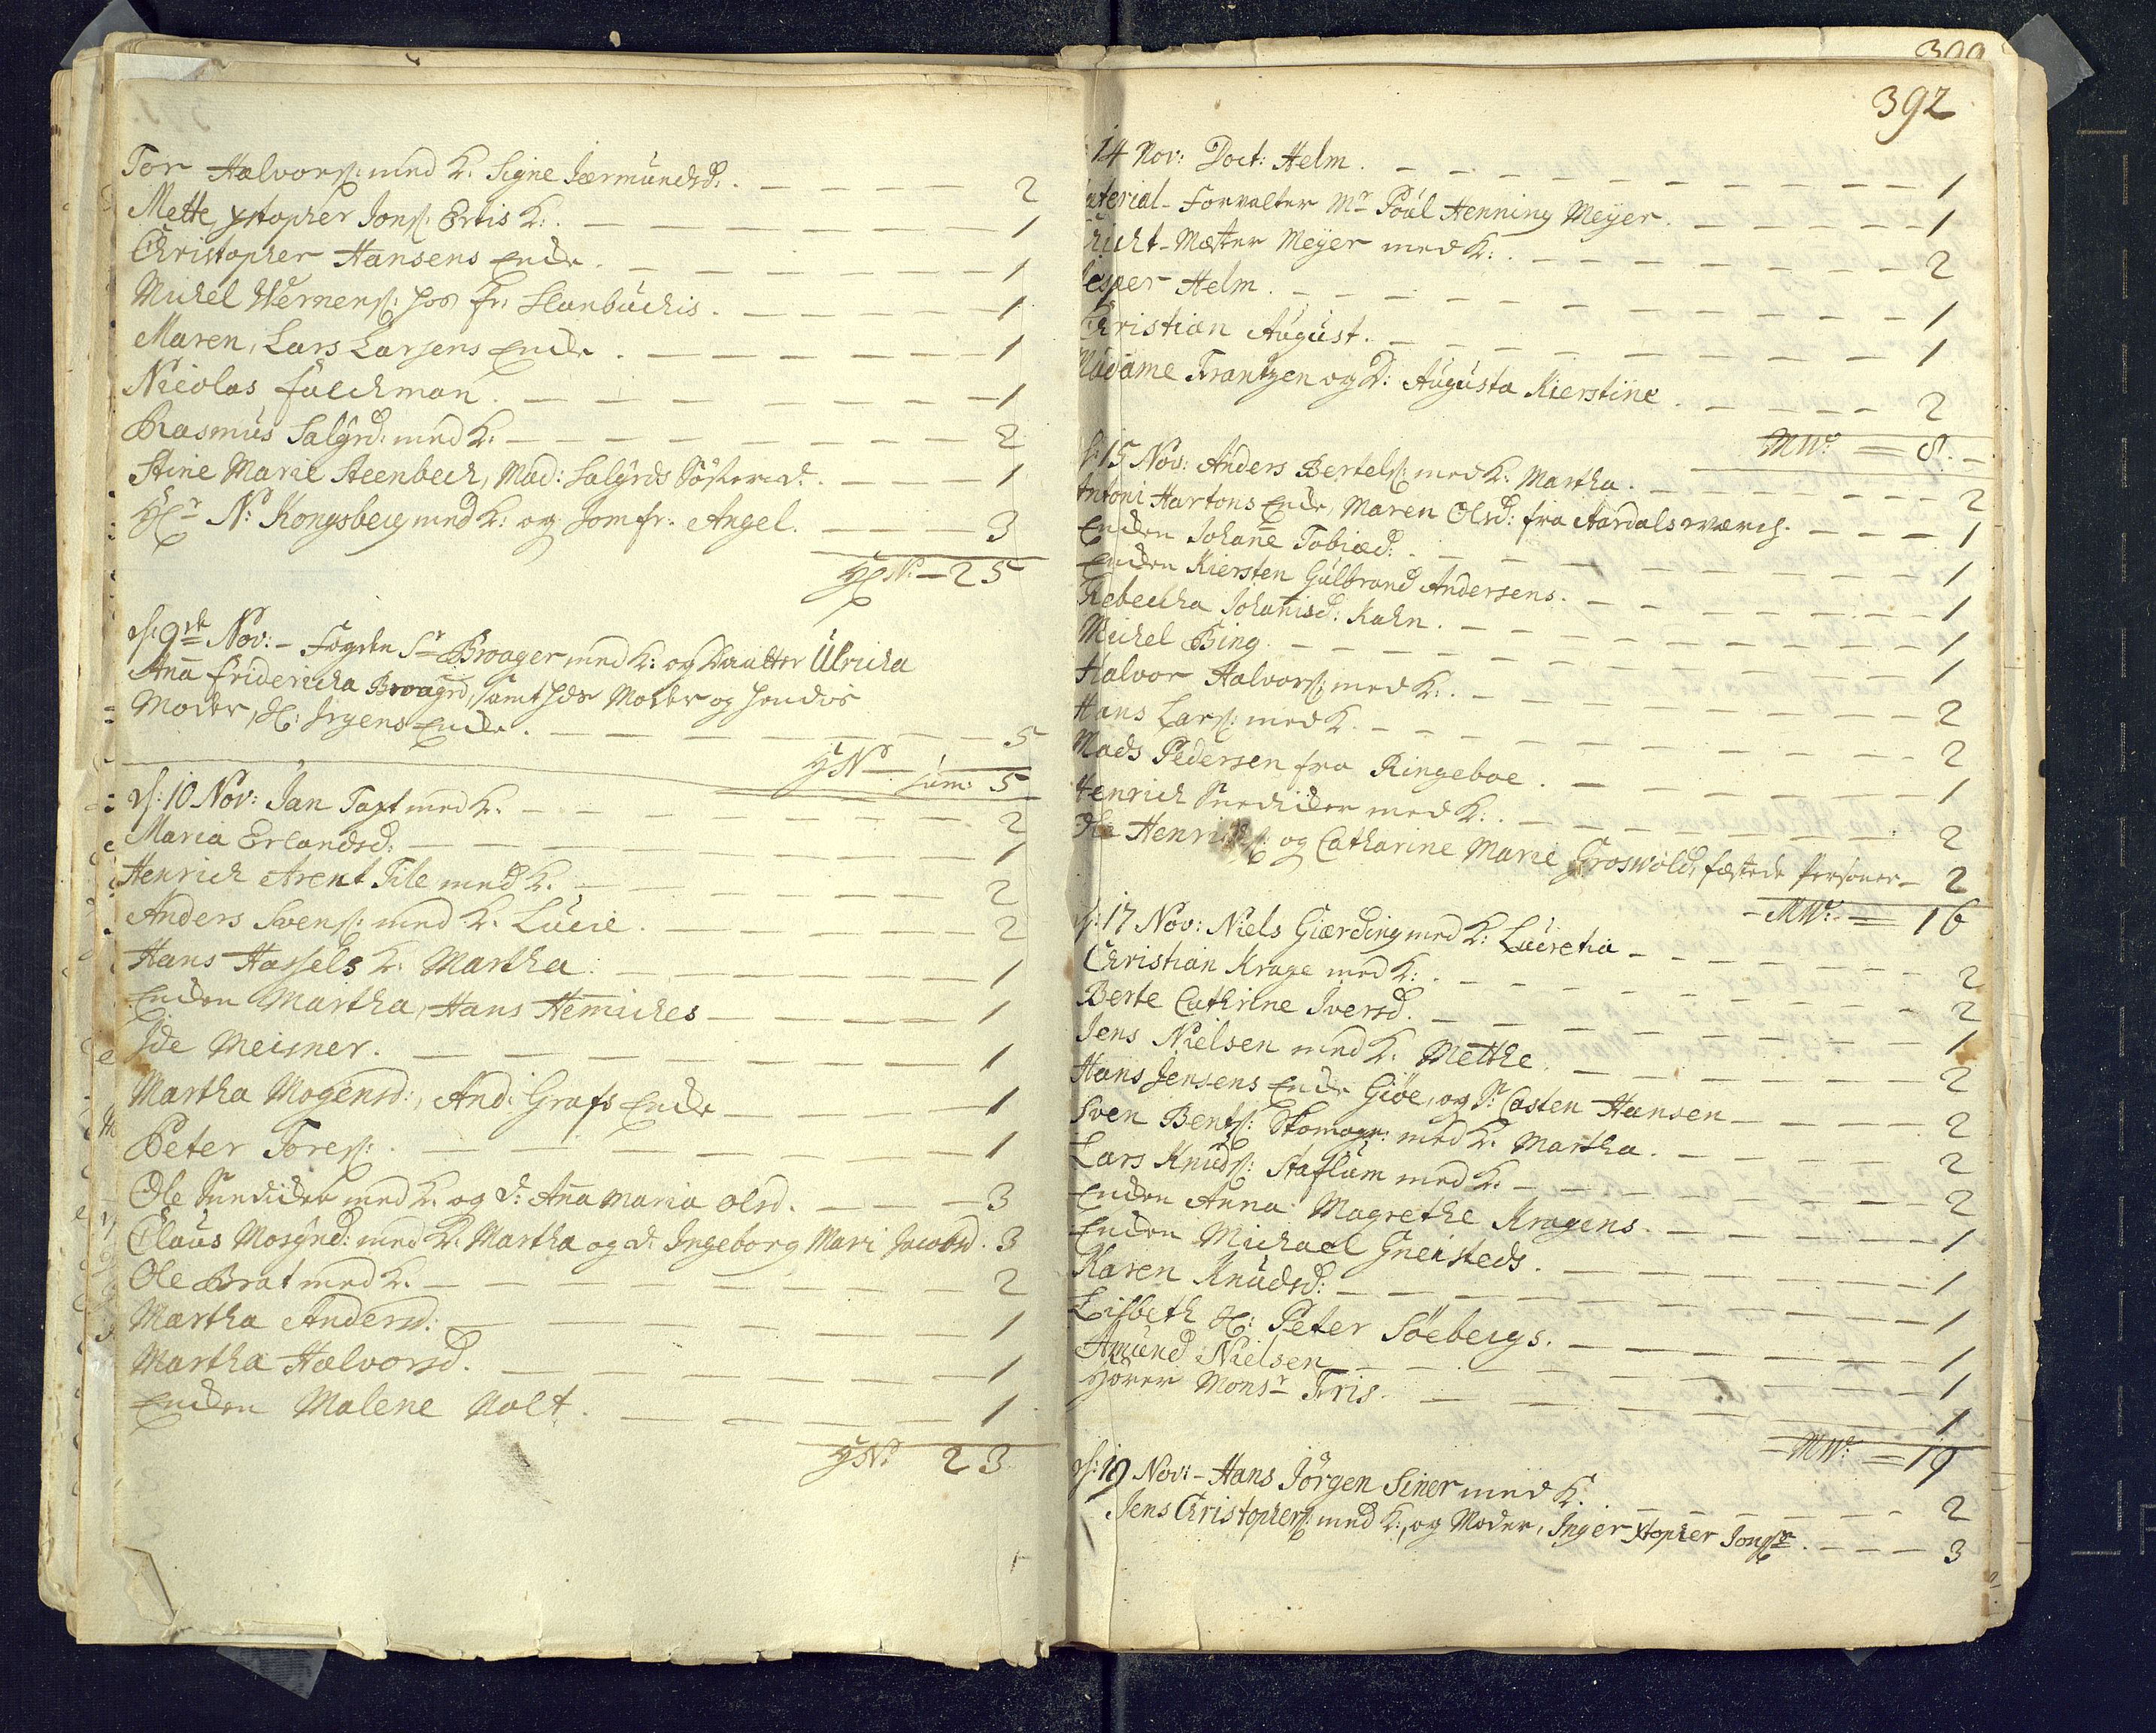 Tor Halvors: med K. Signe Giermundsd. 2
Mette xstopher Jons: Ertis K. 1
Christopher Hansens Encke. 1
Michel Werners: hos Fr. 1
Maren, Lars Larsens Encke. 1
Nicolas Falckman. 1
Rasmus Salgrd. med K. 2
Stine Marie Steenbech, Mad: Salgrds Søsterd. 1
Hr N. Kongsberg med K. og Jomfr. Angel. 3
25
d: 9de Nov: - Fogden Sr Broager med K: og Daatter Ulricha
Aña Fridericha Broagrd, samt hds Moder og hendes
Moder, H: Irgens Encke. 5
sum: 5
d: 10 Nov: Jan Taxt med K. 2
Maria Erlandsd: 1
Henrich Arent Tile med K. 2
Anders Svens: med K. Lucie. 2
Hans Hassels K. Martha. 1
Encken Martha, Hans Hem̄iches 1
Ide Meisner. 1
Martha Mogensd:, And: Grafs Encke 1
Peter Tores: 1
Ole Snedicker med K. og d: Aña Maria Olsd. 3
Claus Mosgrd: med K. Martha og d. Ingeborg Mari Jacobsd. 3
Ole Brat med K. 2
Martha Andersd: 1
Martha Halvorsd. 1
Encken Malene Nolt. 1
23
392
14 Nov: Doct: Helm. 1
aterial-Forvalter Mr Poul Henning Meyer. 1
Mester Meyer med K: 2
esper Helm. 1
Christian August. 1
Madame Frantzen og D: Augusta Kierstine 2
8.
d: 15 Nov: Anders Bertels: med K: Martha. 2
Antoni Hartons Encke, Maren Olsd: fra Aardals værch. 1
Encken Johañe Tobiæd: 1
Encken Kiersten Gulbrand Andersens. 1
Rebechha Johañisd: Kahn. 1
Michel Bing. 1
Halvor Halvors: med K: 2
Hans Lars: med K. 2
Mads Pedersen fra Ringeboe. 1
Henrich Snedicker med K: 2
Ole Henrichs: og Catharine Marie Groswold, fæstede Personer 2
16
d: 17 Nov: Niels Giærding med K: Lucretia 2
Christian Krage med K: 2
Berte Cathrine Iversd. 1
Jens Nielsen med K. Metthe. 2
Hans Jensens Encke Giøe, og Sr Casten Hansen 2
Sven Bents: Skomagr: med K. Martha. 2
Lars Knuds: Staflum med K. 2
Encken Anna Magrethe Kragens. 1
Encken Michael Gneisteds. 1
Karen Knudsd: 1
Lisbeth H: Peter Søebergs. 1
Amund Nielsen 1
Hører Monsr Friis. 1
19
d: 19 Nov: - Hans Jørgen Siner med K. 2
Jens Christophers: med K:, og Moder, Inger Xtopher 3